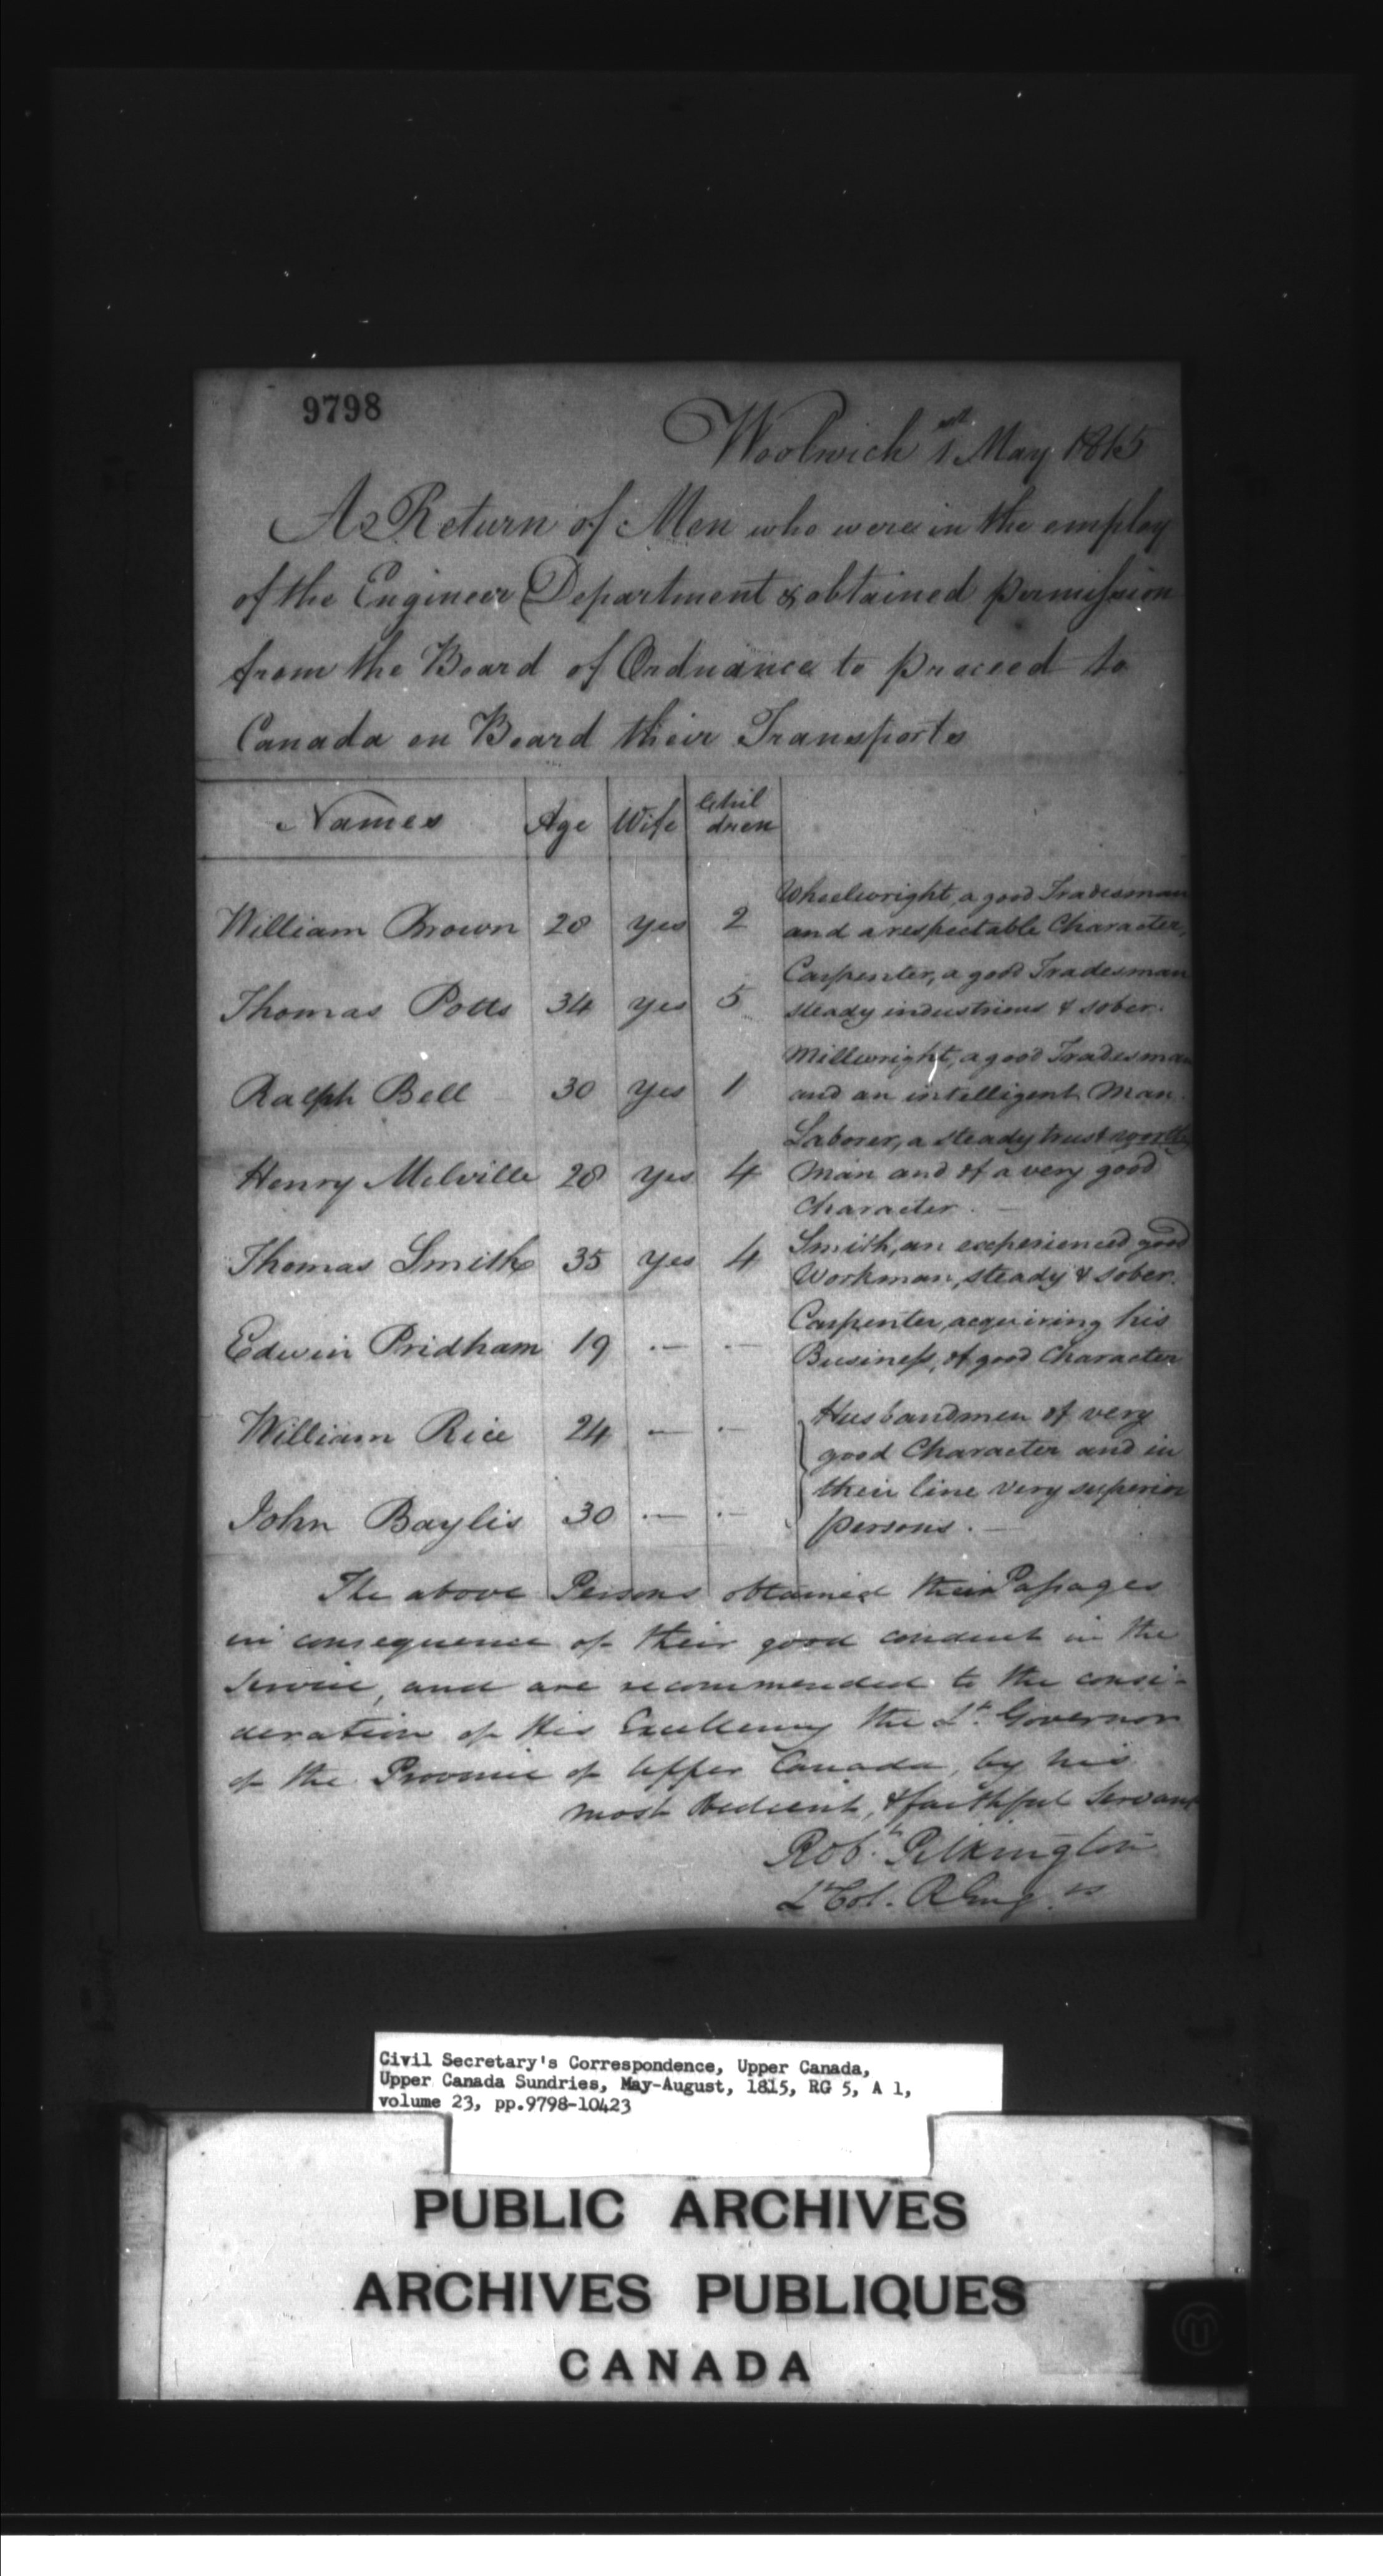 9798
Woolwich 1st May 1815
A Return of Men who were in the employ
of the Engineer Department & obtained permission
from the Board of Ordnance to proceed to
Canada on Board their Transports
Names Age Wife Chil dren
William Brown 28 yes 2 Wheelwright, a good Tradesman and a respectable Character,
Thomas Potts 34 yes 5 Carpenter, a good Tradesman steady industrious & sober.
Ralph Bell 30 yes 1 Millwright, a good Tradesman and an intelligent Man.
Henry Melville 28 yes 4 Laborer, a steady trustworthy Man and of a very good Character. —
Thomas Smith 35 yes 4 Smith, an experienced good Workman, steady & sober.
Edwin Pridham 19 — — Carpenter, acquiring his Business, of good Character
William Rice 24 — — Husbandmen of very good Character and in
John Baylis 30 — — their line very superior persons. —
The above Persons obtained their Passages
in consequence of their good conduct in the
Service, and are recommended to the consi-
deration of His Excellency the Lt. Governor
of the Province of Upper Canada, by his
most Obedient, & faithful Servant
Robt. Pilkington
Lt Col. R Engrs
Civil Secretary's Correspondence, Upper Canada,
Upper Canada Sundries, May-August, 1815, RG 5, A 1,
volume 23, pp.9798-10423
PUBLIC ARCHIVES
ARCHIVES PUBLIQUES
CANADA